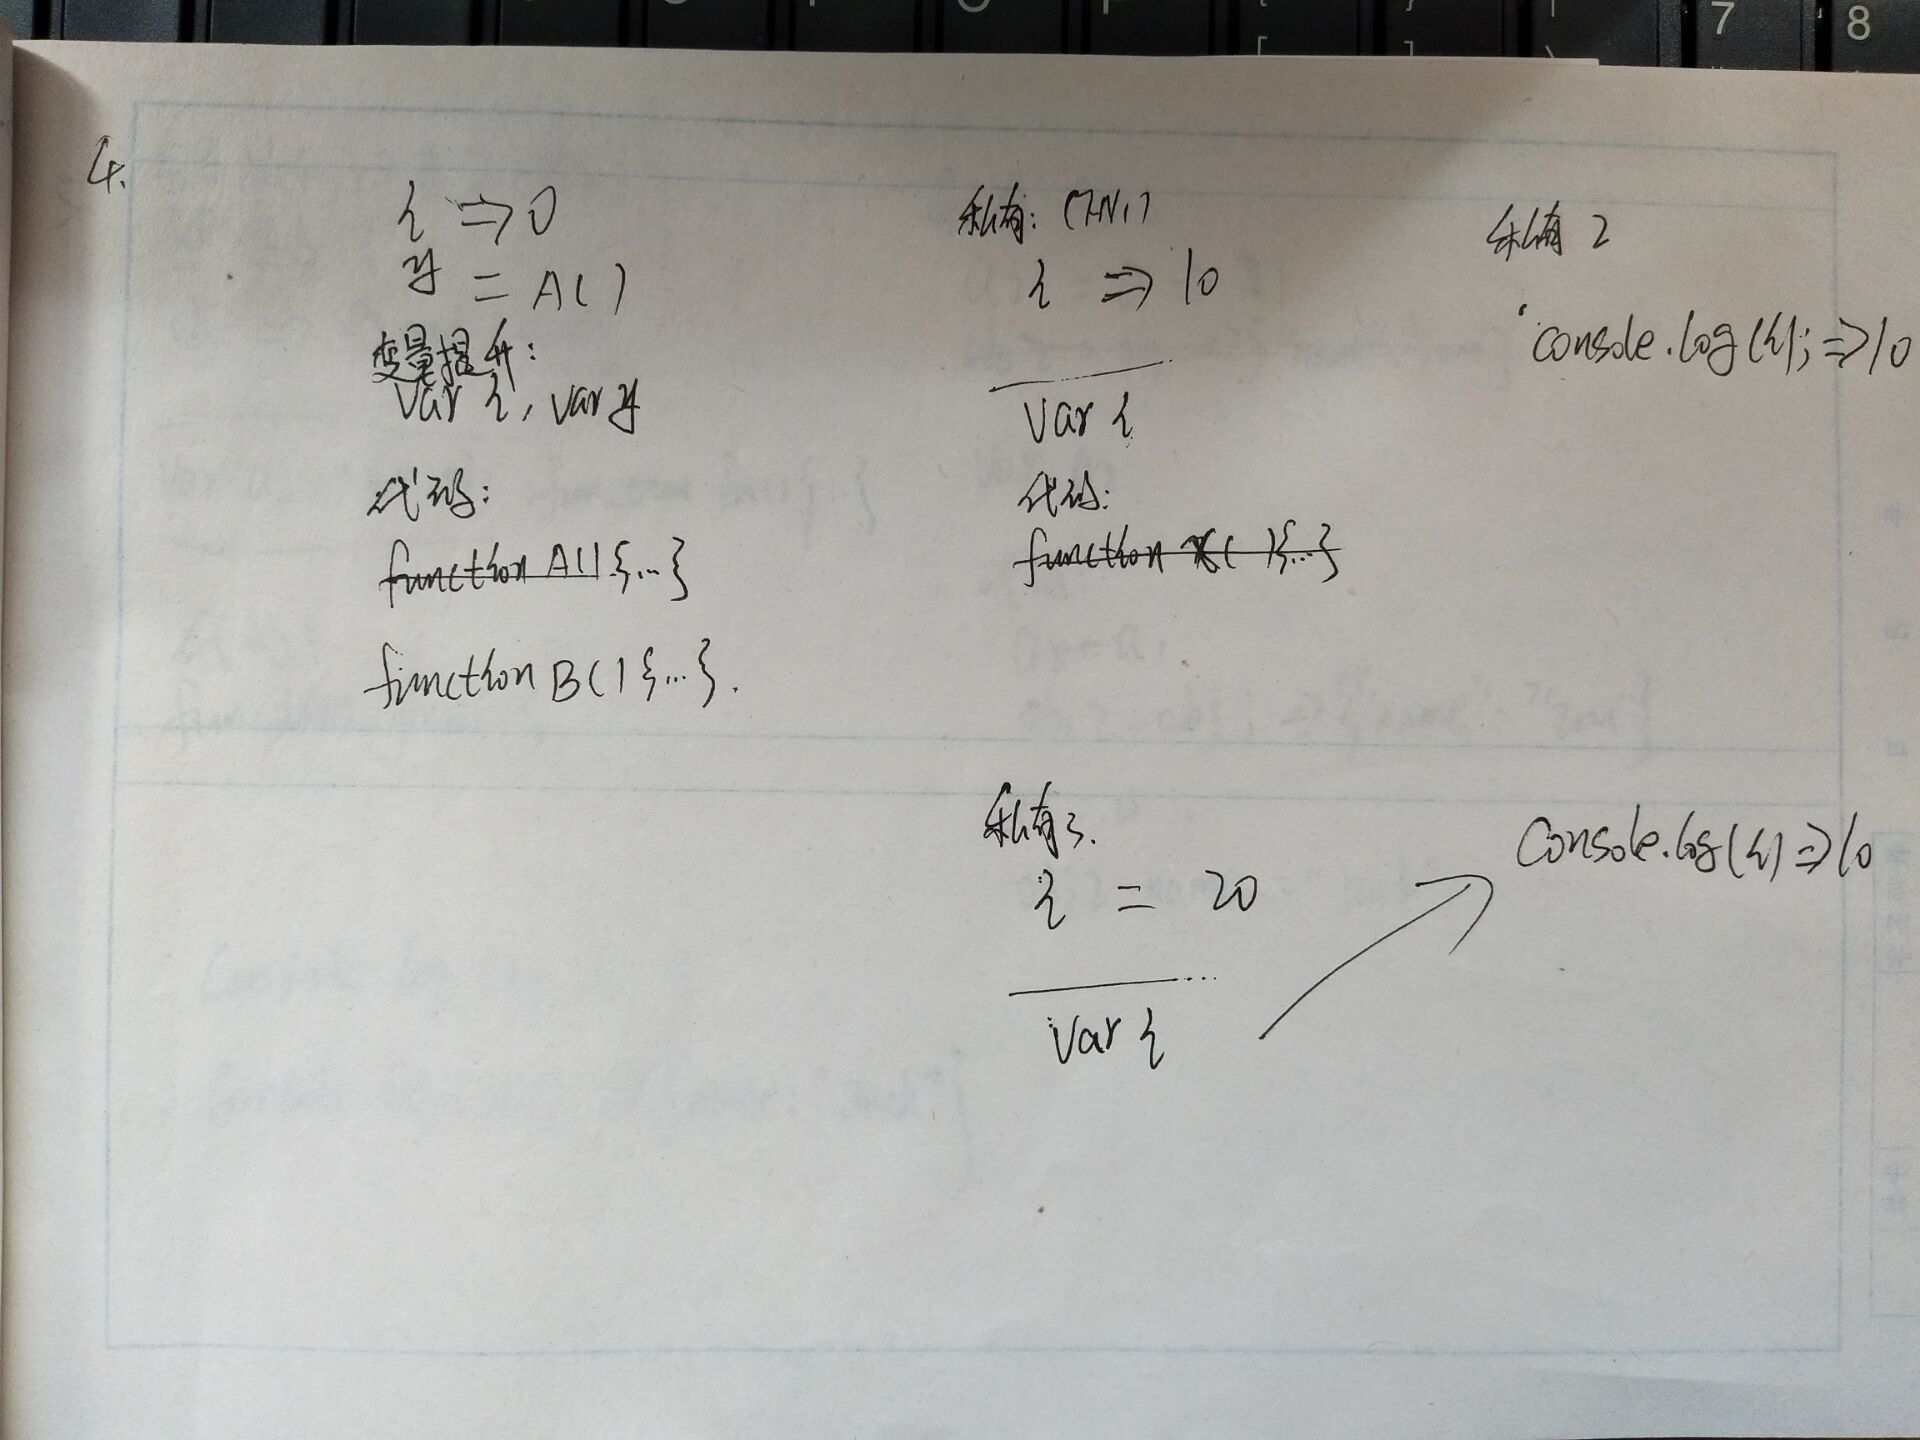 4.
i => 0
y = A()
变量提升:
var i, var y
代码:
function A() {...}
function B() {...}.
私有:
i => 10
var i
代码:
function x() {...}
私有2
console.log(i); => 10
私有3.
i = 20
var i
Console.log(i) => 10
7
8